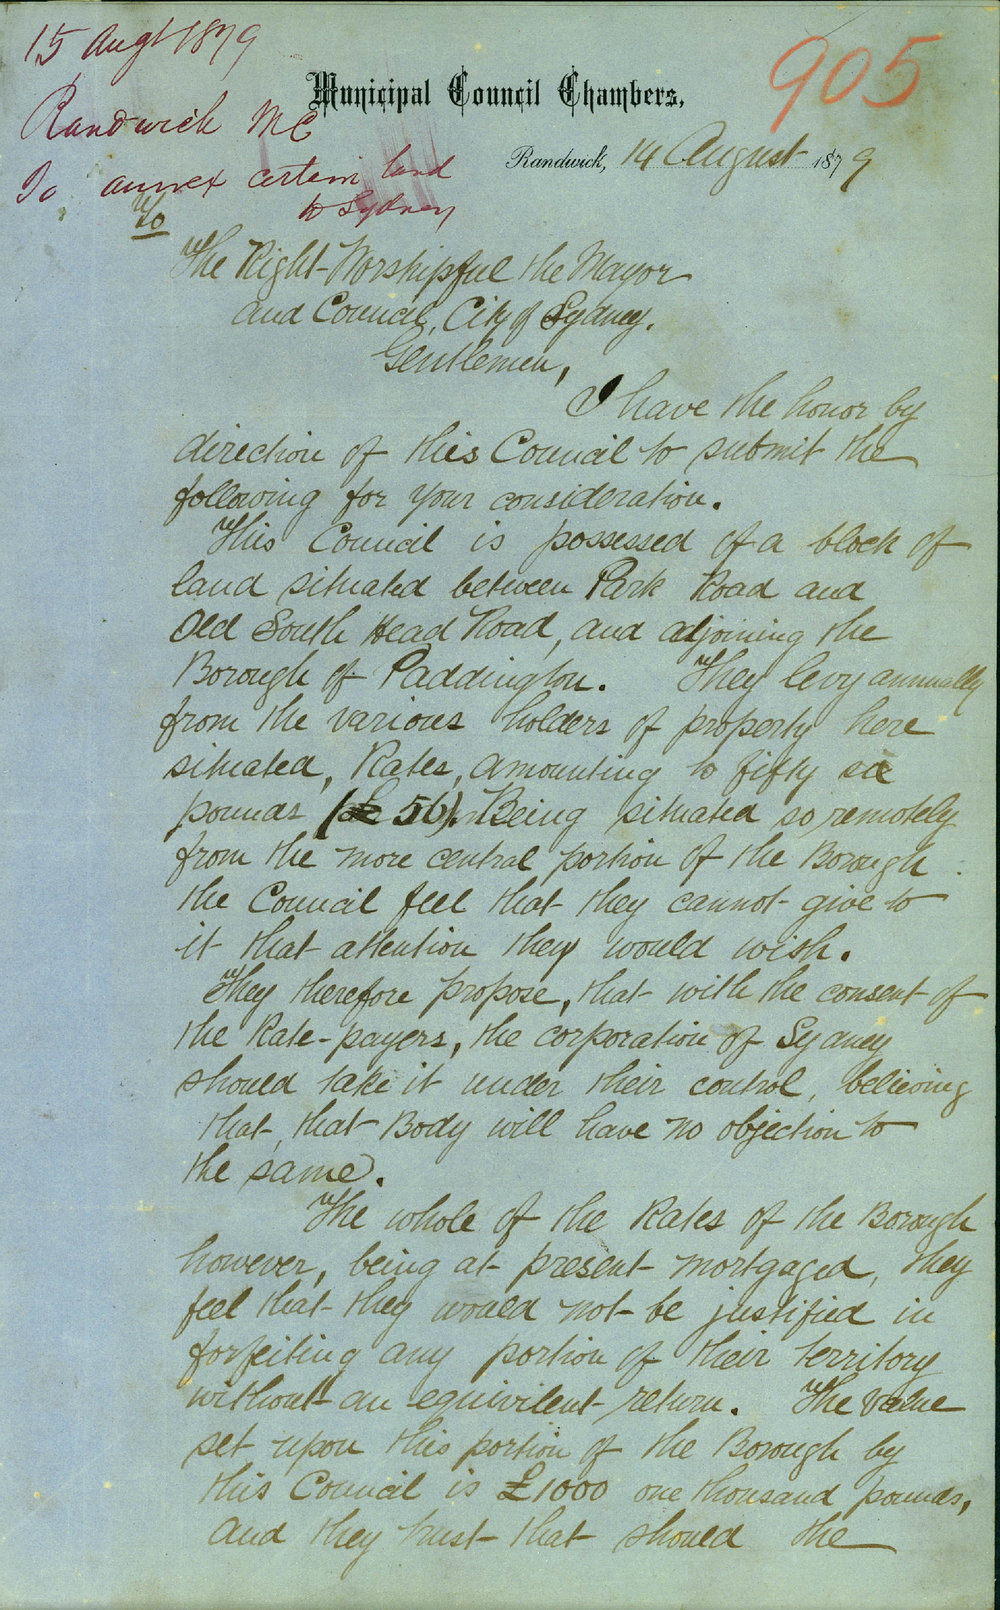 15 Augt 1879
905
Municipal Council Chambers,
Randwick MC
Randwick, 14 August 1879
To annex certain land
to Sydney
To
The Right Worshipful the Mayor
and Council, City of Sydney.
Gentlemen,
I have the honor by
direction of this Council to submit the
following for your consideration.
This Council is possessed of a block of
land situated between Park Road and
Old South Head Road, and adjoining the
Borough of Paddington. They levy annually
from the various holders of property here
situated, Rates, amounting to fifty six
pounds (£56). Being situated so remotely
from the more central portion of the Borough
the Council feel that they cannot give to
it that attention they would wish.
They therefore propose, that with the consent of
the Rate-payers, the corporation of Sydney
should take it under their control, believing
that, that Body will have no objection to
the same.
The whole of the Rates of the Borough
however, being at present mortgaged, they
feel that they would not be justified in
forfeiting any portion of their territory
without an equivilent return. The value
set upon this portion of the Borough by
this Council is £1000 one thousand pounds,
and they trust that should the